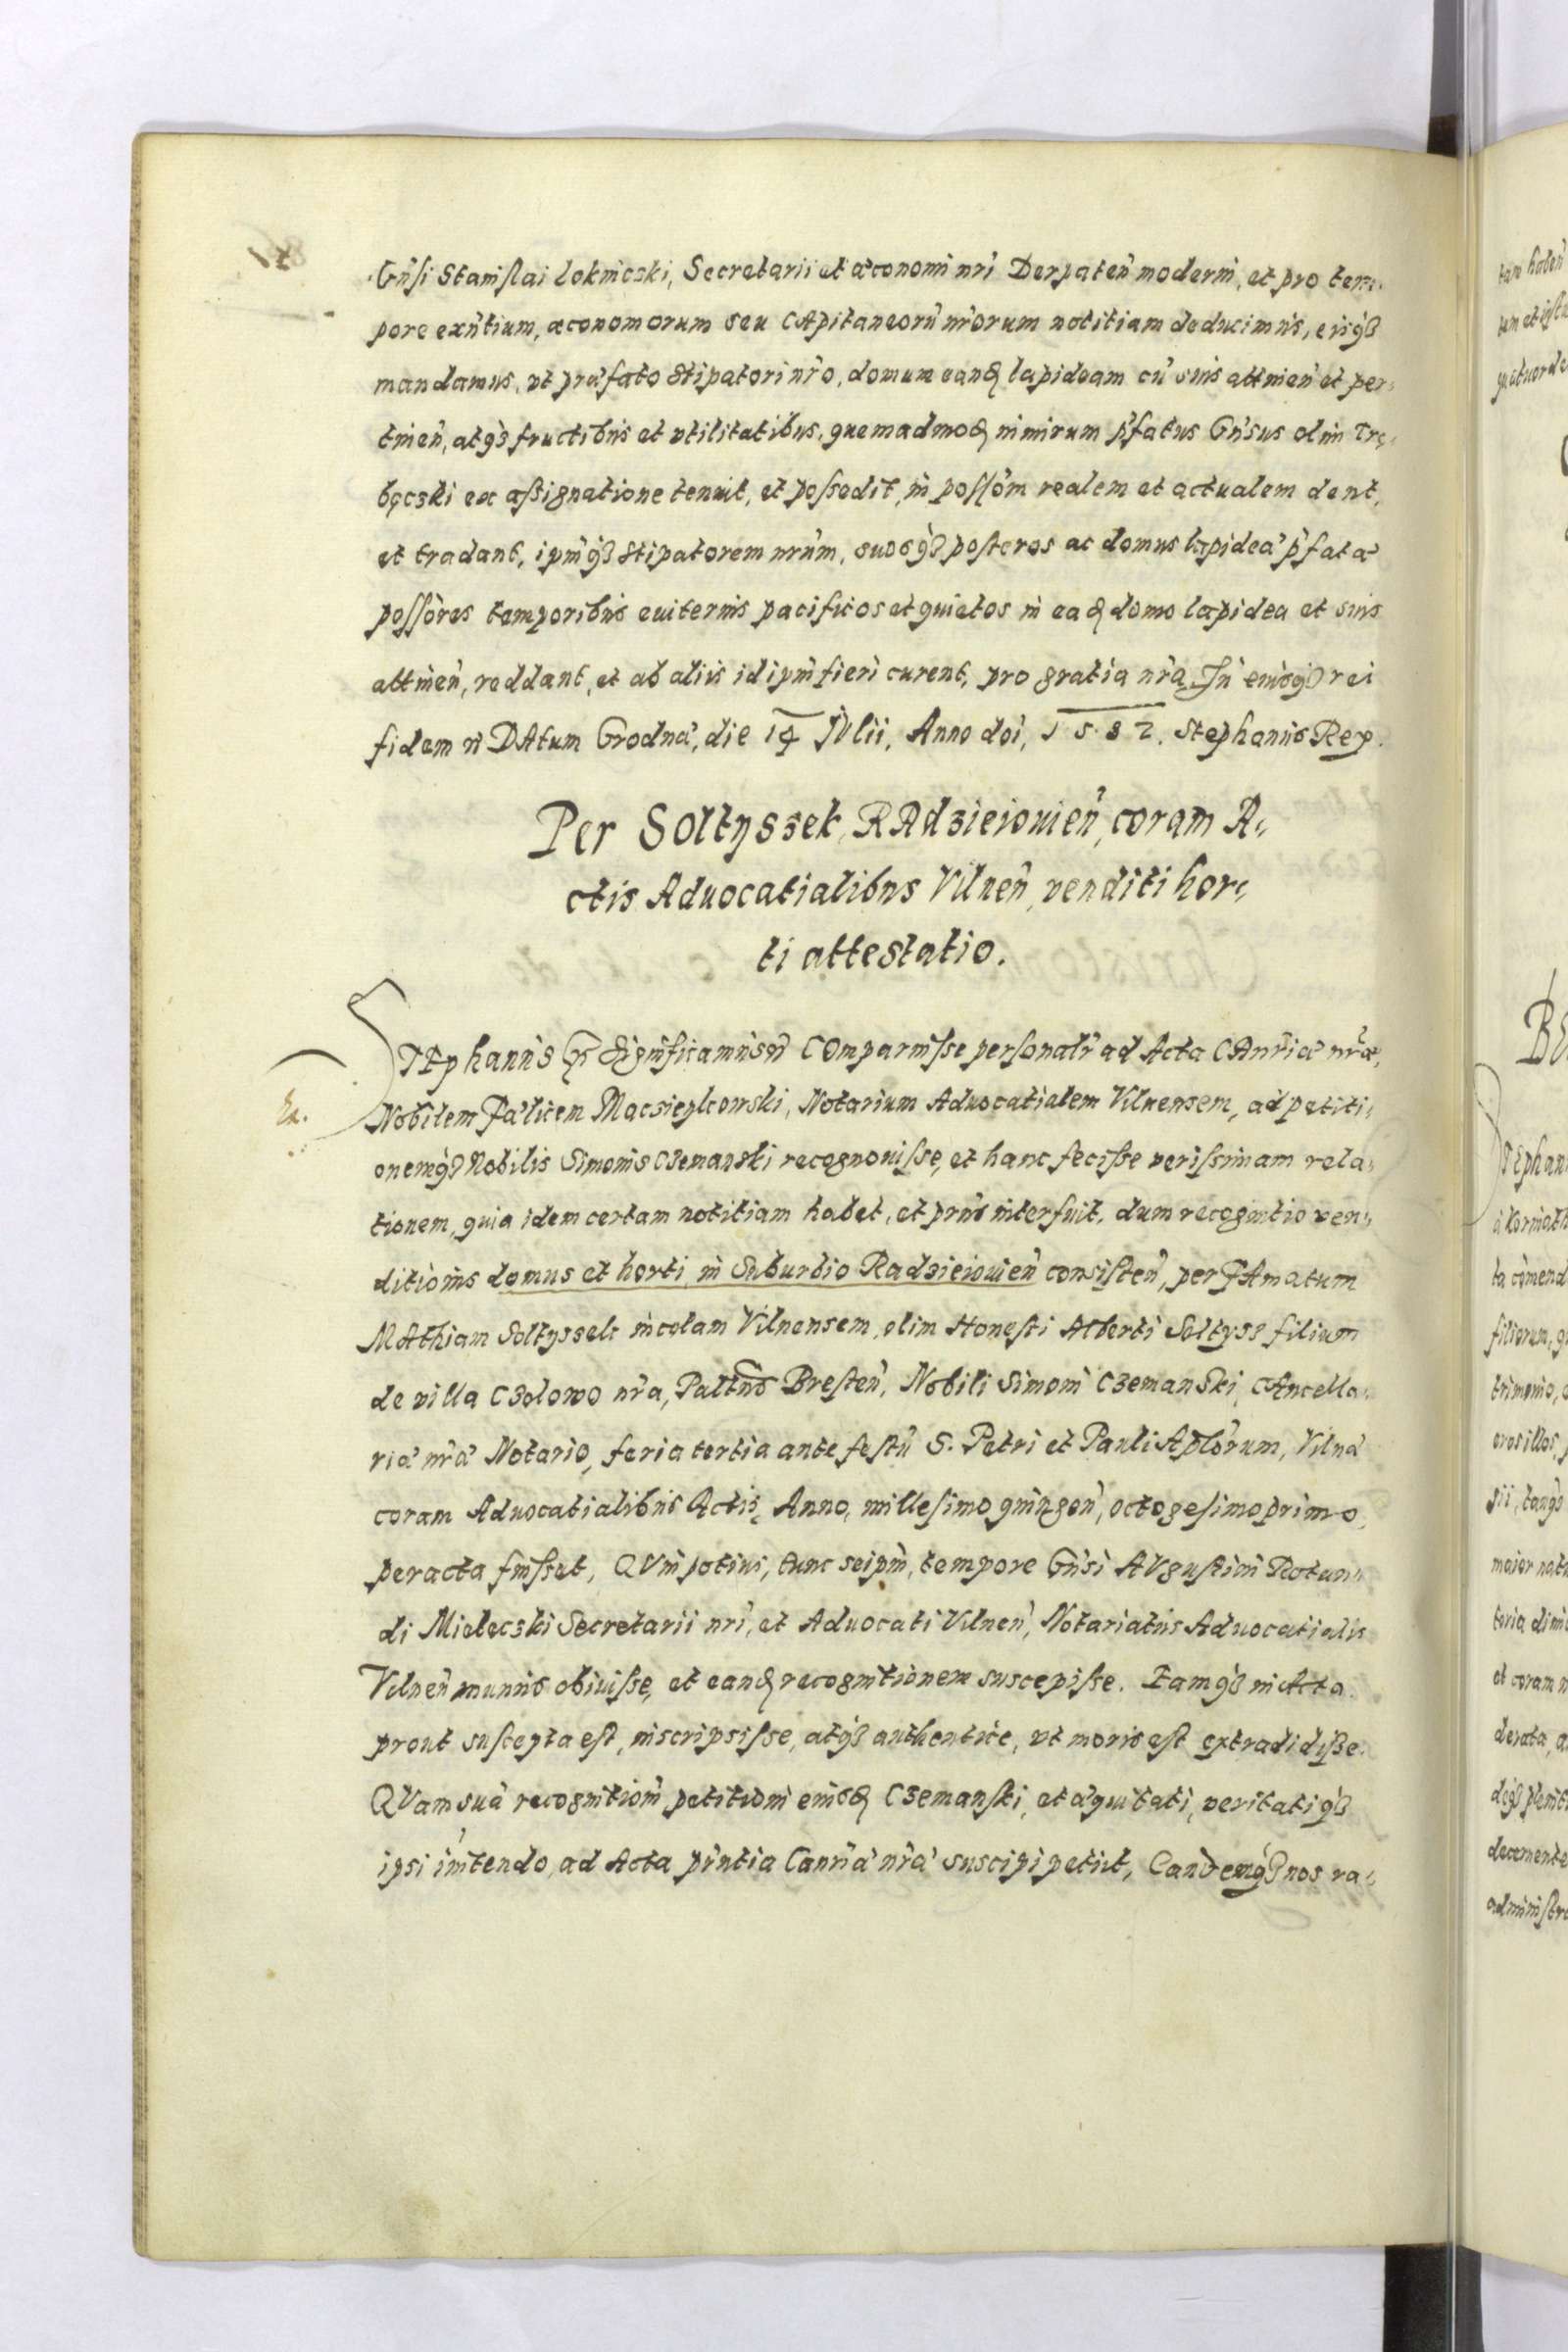 Gn̄si Stanislai loknicski, Secretarii et æconomi nr̄i Derpaten̄ moderni, et pro tem-
pore exn̄tium, æconomorum seu CApitaneorū nr̄orum notitiam deducimus, eisq3
mandamus, vt præfato Stipatori nr̄o, domum eand lapideam cū suis attinen̄ et per-
tinen̄, atq3 fructibus et vtilitatibus, quemadmod nimirum p̄fatus Gn̄sus olim Trę-
bęcski ex aßignatione tenuit, et possedit, in possōm realem et actualem dent,
et tradant, ipm̄q3 Stipatorem nrūm, suosq3 posteros ac domus lapideæ p̄fatæ
possōres temporibus euiternis pacificos et quietos in ead domo lapidea et suis
attinen̄, reddant, et ab aliis id ipm̄ fieri curent, pro gratia nr̄a. In cuiusq3 rei
fidem n̄ DAtum Grodnæ, die 14 JVlii, Anno doi, 1582. Stephanus Rex.
Per Soltyssek RAdzieiouien̄, coram A-
ctis Aduocatialibus Vilnen̄, venditi hor-
ti attestatio.
STEphanus Significamus COmparuisse personalr̄ ad Acta CAnr̄iæ nr̄æ,
Nobilem Fælicem Macsieylcowski, Notarium Aduocatialem Vilnensem, ad petiti-
onemq3 Nobilis Simonis Czemanski recognouisse, et hanc fecisse verissimam rela-
tionem, quia idem certam notitiam habet, et prius interfuit, dum recognitio ven-
ditionis domus et horti, in Suburbio Radzieiouien̄ consisten̄, per FAmatum
MAthiam Soltyssek incolam Vilnensem, olim Honesti Alberti Soltyss filium
de villa Czolowo nr̄a, Paltn̄s Bresten̄, Nobili Simoni Czemanski, CAncella-
riæ nr̄æ Notario, feria tertia ante festū S. Petri et Pauli Aplōrum, Vilnæ
coram Aduocatialibus Actis, Anno, millesimo quingen̄, octogesimo primo
peracta fuisset, QVin potius, tunc seipm̄, tempore Gn̄si AVgustini Rotun-
di Mielecski Secretarii nr̄i, et Aduocati Vilnen̄, Notariatus Aduocatialis
Vilnen̄ munus obiuisse, et eand recognitionem suscepisse. Eamq3 in Acta
prout suscepta est, inscripsisse, atq3 authentice, vt moris est extradidisse.
QVam suā recognition̄, petitioni eiusd Czemanski, et æquitati, veritatiq3
ipsi in̄itendo, ad Acta prn̄tia Canr̄iæ nr̄æ suscipi petiit, Eandemq3 nos ra-